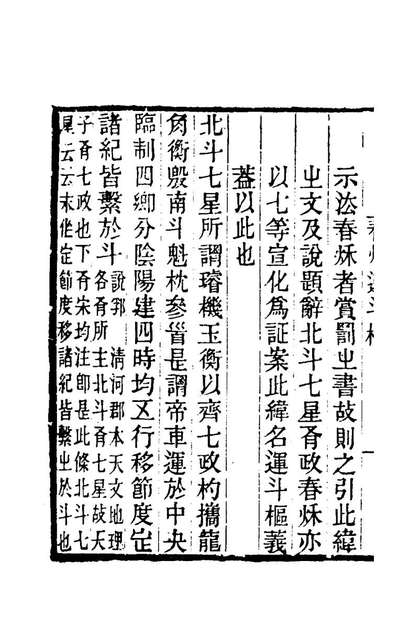 示㳒春秌者賞罰㞢書故則之引此緯
㞢文及說題辭北斗七星有政春秌亦
以七等宣化爲証案此緯名運斗樞義
蓋以此也
北斗七星所謂璿機玉衡以齊七政杓攜龍
角衡殷南斗魁枕參𩠐是謂帝車運於中央
臨制四鄉分陰陽建四時均五行移節度定
諸紀皆繫於斗說郛 清河郡本天文地理
各有所主北斗有七星故天
子有七政也下有宋均注即是此條北斗七
星云云末作定節度移諸紀皆繫㞢於斗也